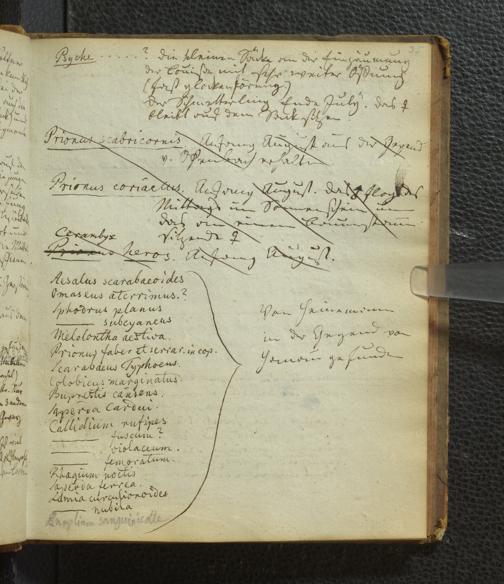 Psyche ......? die kleinen Säcke an der Einzäunung
der mit sehr weiter Öffnung
(fast glockenförmig)
Der Schmetterling Ende July. das ♀
bleibt auf dem Sacke sitzen
Prionus scabricornis Anfang August aus der Gegend
v. Offenbach erhalten
Prionus coriaceus. Anfang August. das ♂ flog des
Mittags im Sonnenschein
das an einem Baumstamm
sitzende ♀
Cerambyx
Prionus heros. Anfang August.
Aesalus scarabaeoides
Omaseus aterrimus.?
Sphodrus planus
——— subcyaneus
Melolontha aestiva.
Prionus faber et serrar. in cop.
Scarabaeus Typhoeus.
Colobicus marginatus.
Buprestis
Saperda Cardui.
Callidium rufipes
——— fuscum?
——— violaceum.
——— femoratum.
Rhagium
Saperda ferrea.
Lamia curculionoides
——— nubila
sanguinicolle
Von Heinemann
in der Gegend von
gefunden